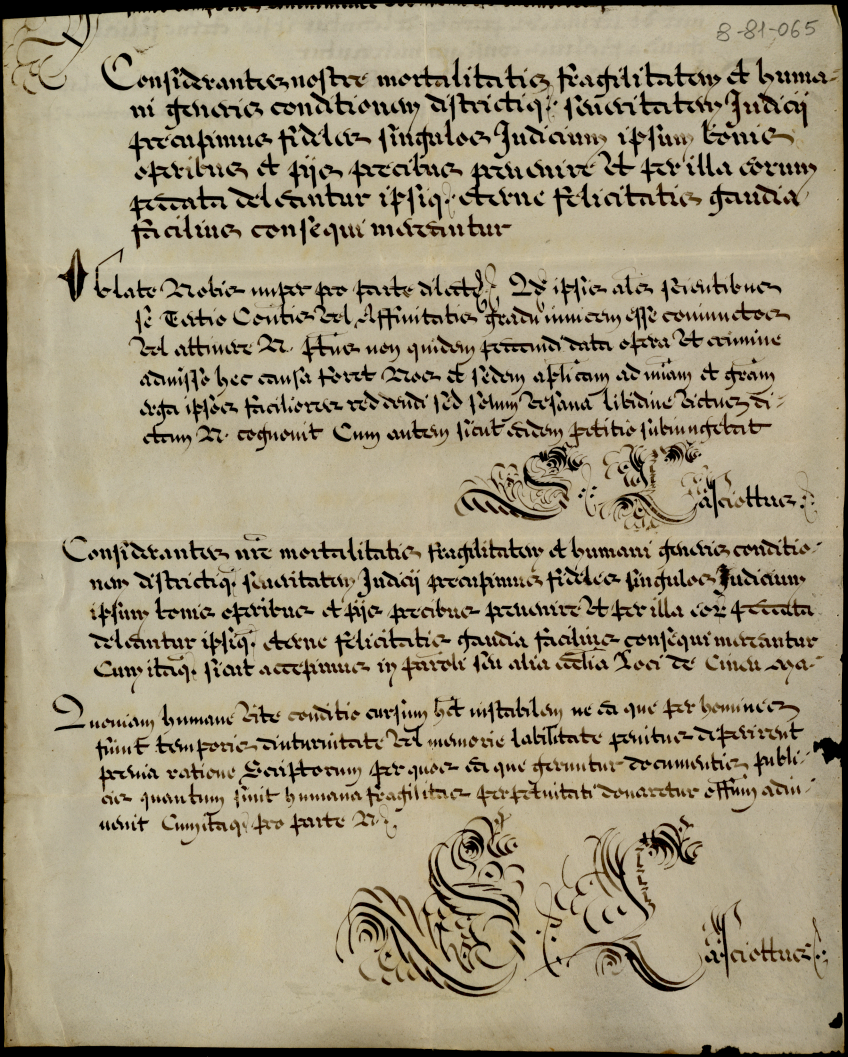 8-81-065
Considerantes nostre mortalitatis fragilitatem et huma-
ni generis conditionem districtiq; severitatem Judicii
precupimus fideles singulos Judicium ipsum bonis
operibus et pijs precibus prevenire Et per illa eorum
peccata deleantur ipsiq; eterne felicitatis gaudia
facilius consequi mereantur
Oblate Nobis nuper pro parte dilect Q ipsis als scientibus
se Tertio Contis vel Affinitatis gradu invicem esse coniunctos
vel attinere N. ptus non quidem peccandi data opera Et crimine
admisso hec causa foret Nos et sedem aplicam ad miam et gram
erga ipsos faciliores reddendi sed solum vesana libidine victus di-
ctam N. cognovit Cum autem sicut eadem petitio subiungebat
S. L Casciottus
Considerantes nre mortalitatis fragilitatem et humani generis conditio-
nem districtiq; severitatem Judicii precupimus fideles singulos Judicium
ipsum bonis operibus et pijs precibus prevenire Et per illa eor peccata
deleantur ipsiq; eterne felicitatis gaudia facilius consequi mereantur
Cum itaq; sicut accepimus in paroli seu alia ecclia Loci de
Quoniam humane vite conditio cursum het instabilem ne ea que per homines
fiunt temporis diuturnitate vel memorie labilitate penitus deperirent
previa ratione Scriptorum per quos ea que geruntur documentis publi-
cis quantum sinit humana fragilitas perpetuitati donaretur offium adin-
venit Cum itaq; pro parte N.
S L Casciottus